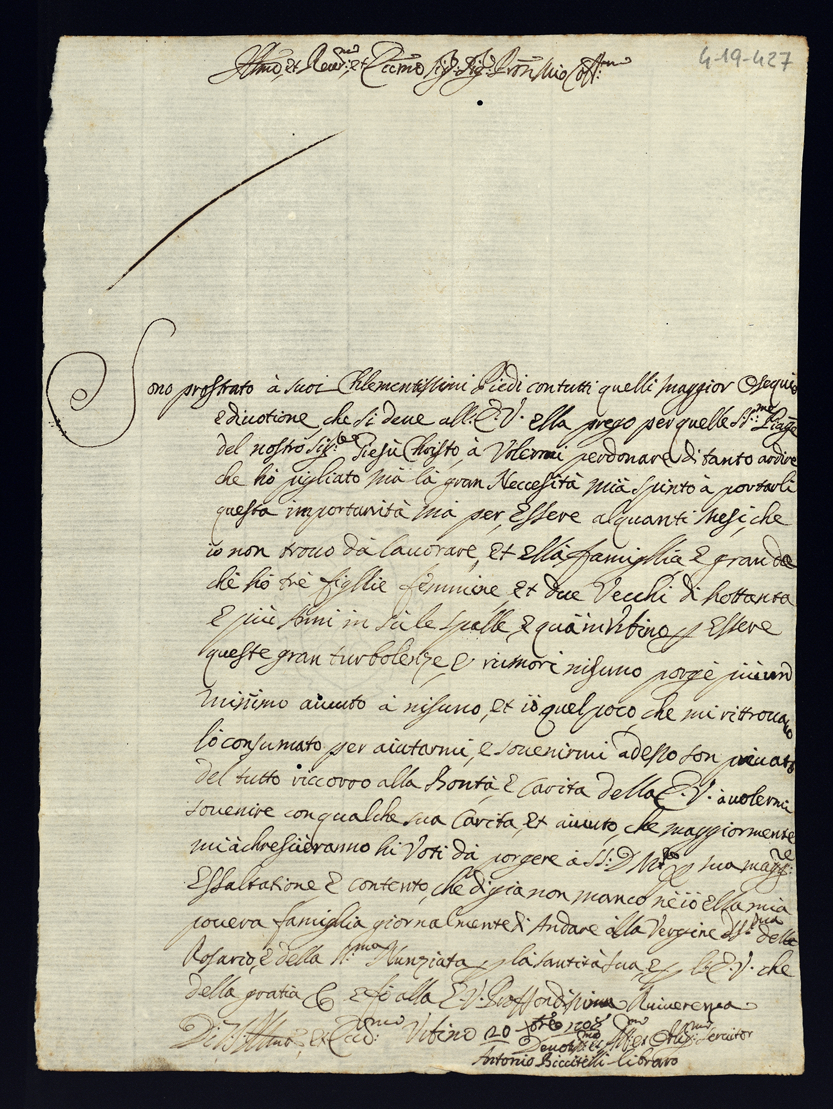 4-19-427
Illmo, et Reuer:mo, et Eccmo Sig:r Sig:r Pron Mio Coll:mo
Sono prostrato à suoi Chlementissimi Piedi con tutti quelli maggior Osequio
e diuotione che si deue all: E. V. ella prego per quelle SS:me Piage
del nostro Sig:re Giesù Christo, à Volermi perdonare di tanto ardire
che hò pigliato mà la gran Neccesità mià spinto à portarli
questa importunità mà per, Essere alquanti Mesi, che
io non trouo dà lauorare, et ella famiglia è grande
chè hò trè figlie femmine et due Vecchi di hottanta
e più Anni in sù le spalle, e quà in Vrbino p Essere
queste gran turbolenze, e rumori nisuno porge più un
minimo aiuuto à nisuno, et iò quel poco, che mi ritrouauo
lò consumato per aiutarmi, e souenirmi adesso son priuato
del tutto riccorro alla Bontà, e Carità della E. V. à uolermi
souenire con qualche sua Carità, et aiuuto che maggiormente
mi àchresieranno hi Voti dà porgere à S: D M:tà p sua magg:re
Essaltatione e contento, che di gia non manco nè iò ella mia
pouera famiglia giornalmente di Andare alla Vergine SS:ma della
Rosario, e della SS:ma Nunziata p la santità sua, e p l: E. V. che
della gratia & e fò alla E. V. Proffondissima Riuerenza
Di V. Illma, et Ecc:ma Vrbino 20 1708
Deuotiss:mo et Seruitor
Antonio Biccitelli Libraro